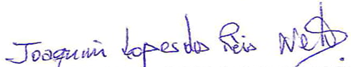 Joaquim Lopes dos Reis Neto